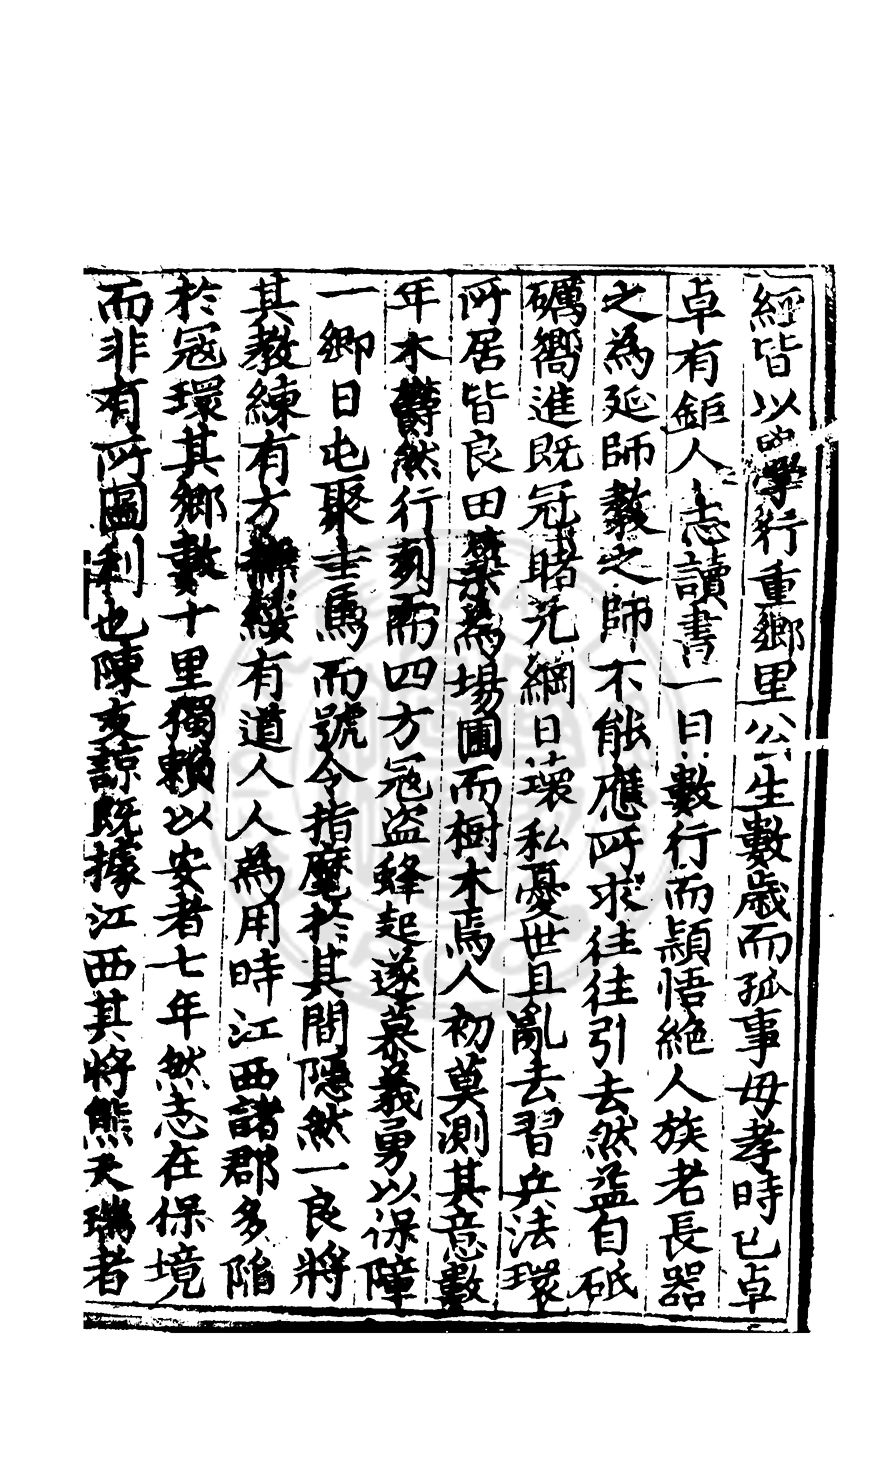 經皆以學行重鄉里公生數歲而孤事毋孝時已卓
卓有鉅人志讀書一目數行而穎悟絶人族老長器
之為延師教之師不能應所求往往引去然益自砥
礪嚮進既冠睹元綱日壞私憂世且亂去習兵法環
所居皆良田築為場圃而樹木焉人初莫測其意數
年木欝然行列而四方冦盗蜂起遂募義勇以保障
一鄉日屯聚士馬而號令指麾於其間隱然一良將
其教練有方撫綏有道人人為用時江西諸郡多陷
於冦環其鄉數十里獨賴以安者七年然志在保境
而非有所圖利也陳友諒既據江西其將熊天瑞者